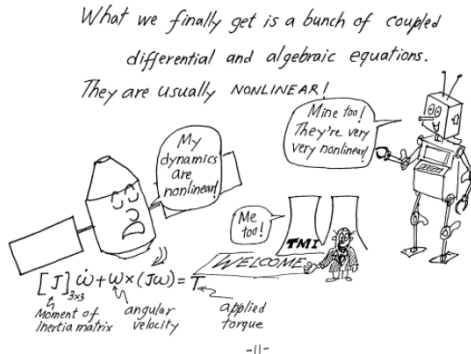 What we finally get is a bunch of coupled
differential and algebraic equations.
They are usually NONLINEAR!
Mine too!
They're very
very nonlinear!
My
dynamics
are
nonlinear!
Me
too!
TMI
WELCOME
[J]3x3 ω̇ + ω×(Jω) = T
Moment of
inertia matrix
angular
velocity
applied
torque
-11-